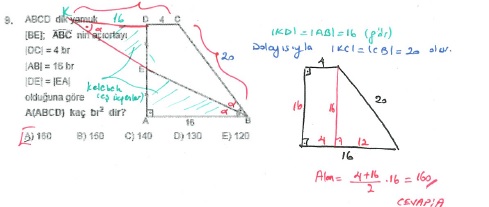 9. ABCD dik yamuk
[BE]; ABC nin açıortayı
|DC| = 4 br
|AB| = 16 br
|DE| = |EA|
olduğuna göre
A(ABCD) kaç br² dir?
A) 160 B) 150 C) 140 D) 130 E) 120
K 16 D 4 C
20
α
kelebek
(eş üçgenler)
E
α
α
A 16 B
|KD|=|AB|=16 (gör)
Dolayısıyla |KC|=|CB|=20 olur.
4
16 16 20
4 12
16
Alan = 4+16/2 · 16 = 160
CEVAP A